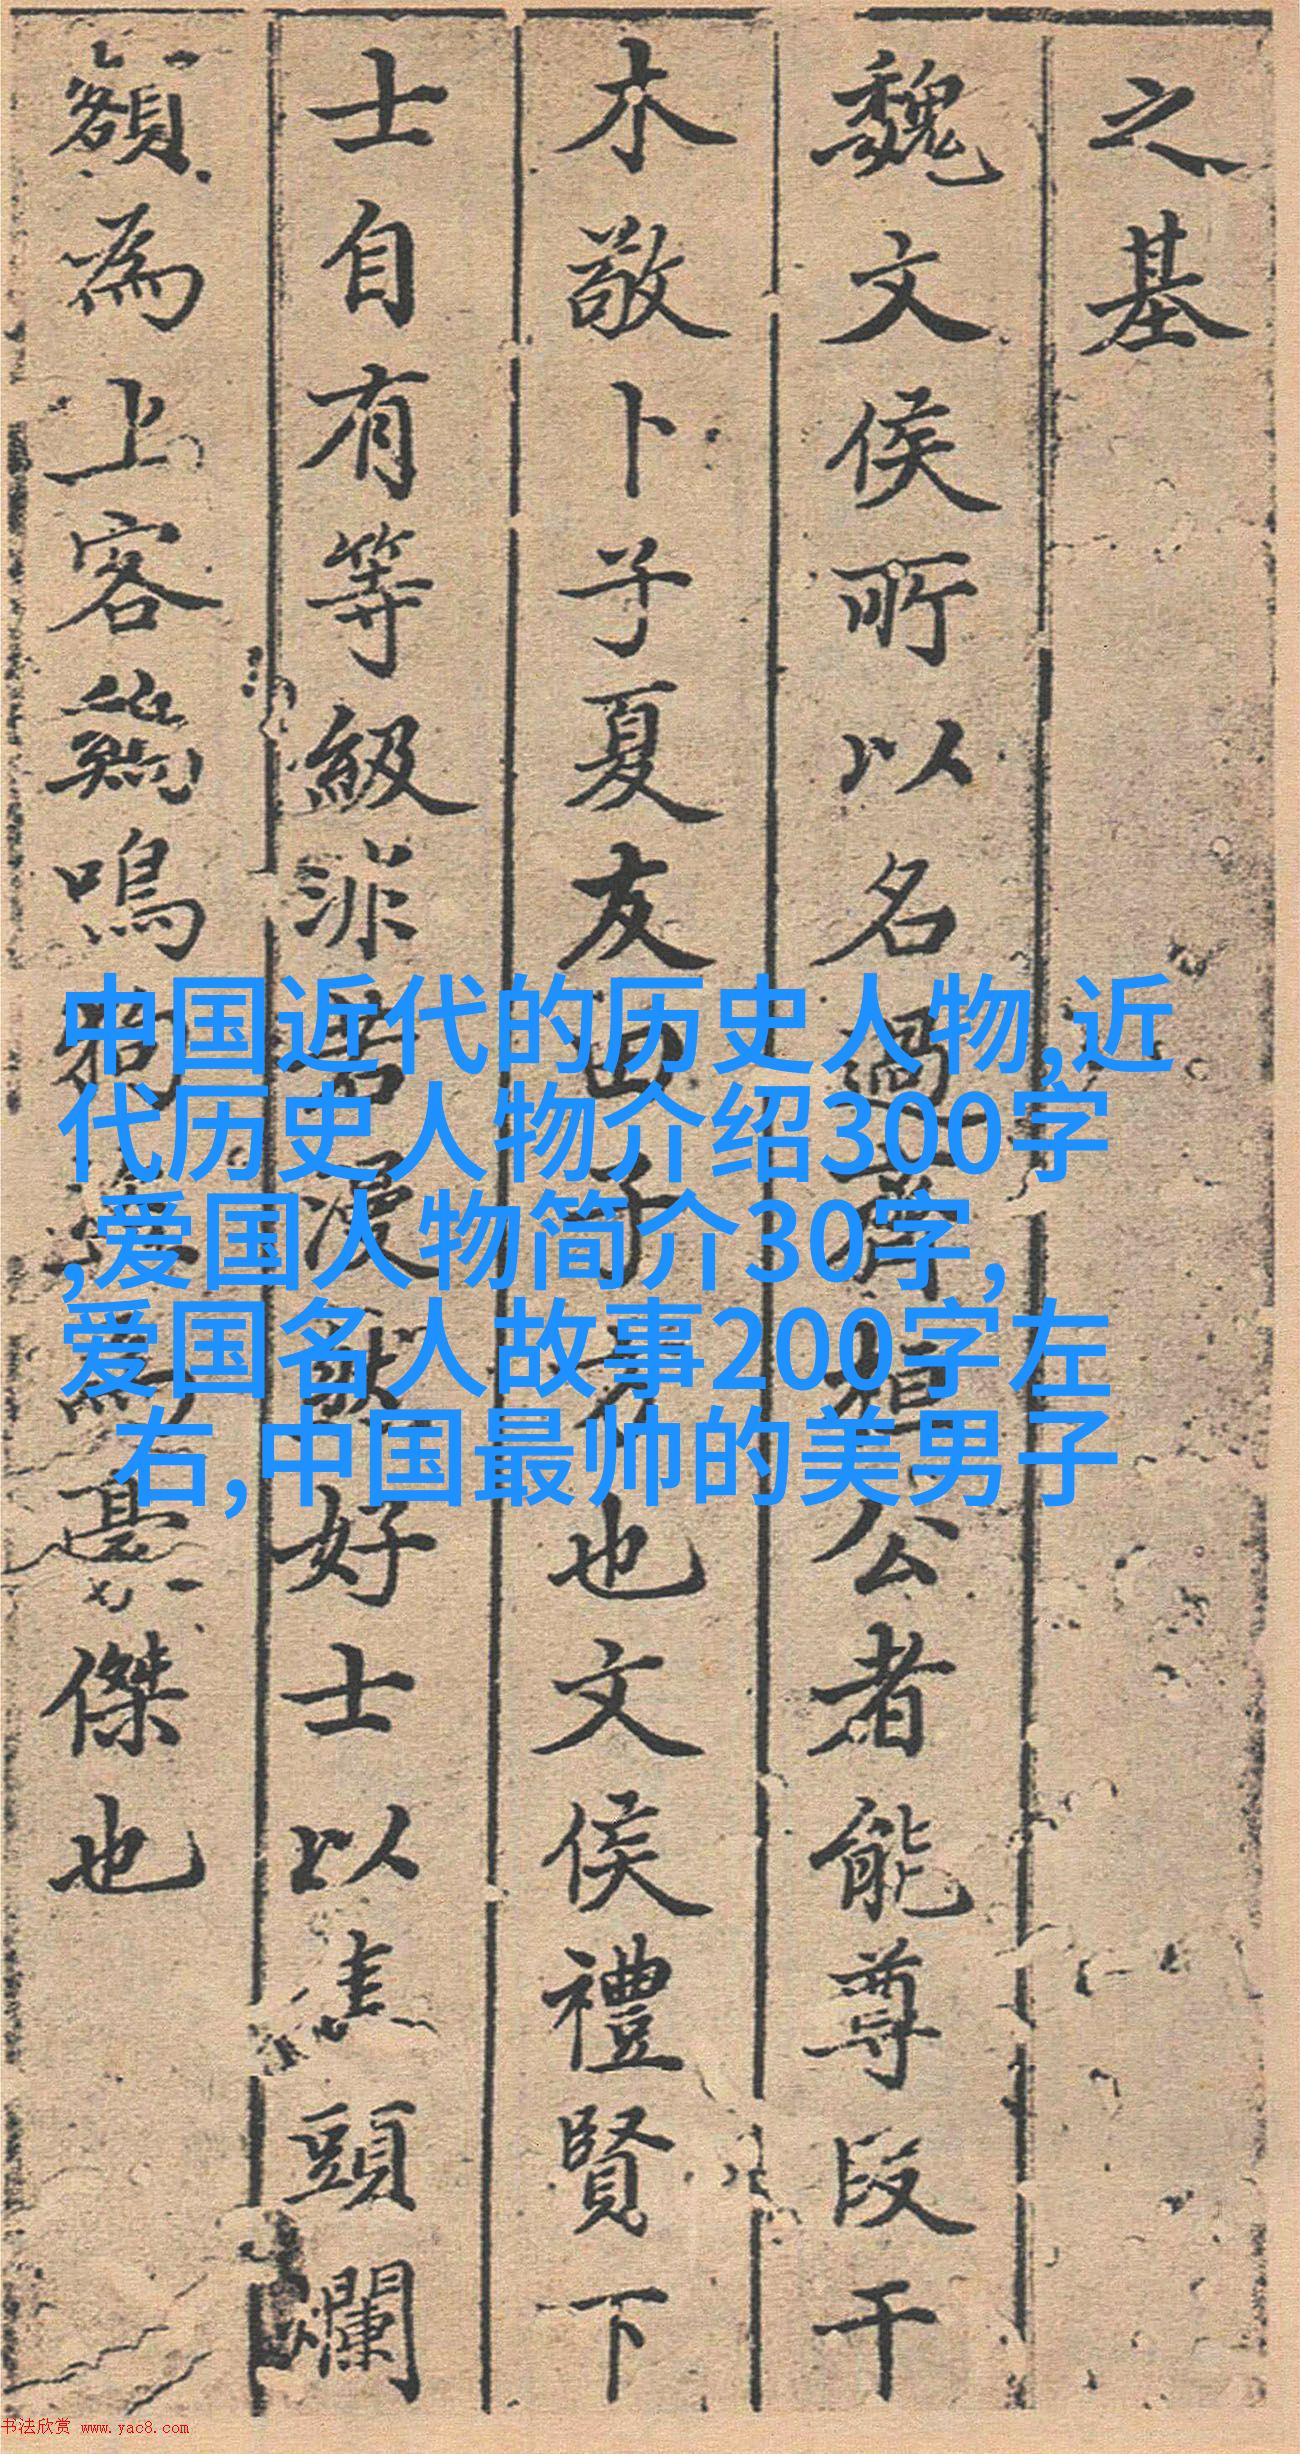 之基
魏文侯所以名過齊桓公者能尊段干
木敬卜子夏友田子方也文侯禮賢下
士自有等級非若漫然好士以焦頭爛
額為上客鷄鳴狗盜為豪傑也
中国近代的历史人物,近
代历史人物介绍300字
,爱国人物简介30字,
爱国名人故事200字左
右,中国最帅的美男子
书法欣赏 www.yac8.com